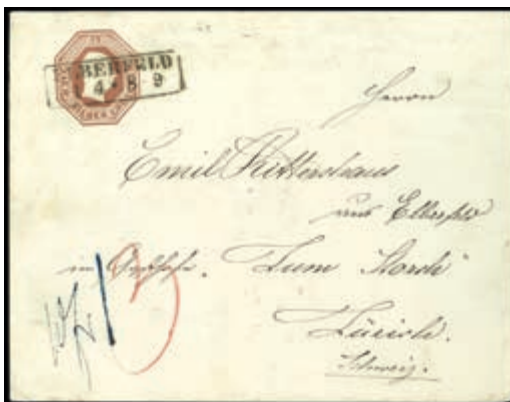 ELBERFELD
4 * 8 9
Herrn
Emil Rittershaus
aus Elberfeld
im Gasthofe. Zum Storch
Zürich.
Schweiz.